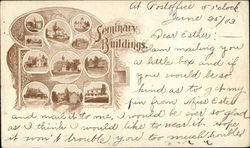 Seminary
Buildings.
At Postoffice 5 o'clock
June 25/03
Dear Esther: —
I am mailing you
a little box and if
you would be so
kind as to get my
pin from Miss
and mail it to me, I would be ever so glad
as I think I would like to wear it now
it won't trouble you too much